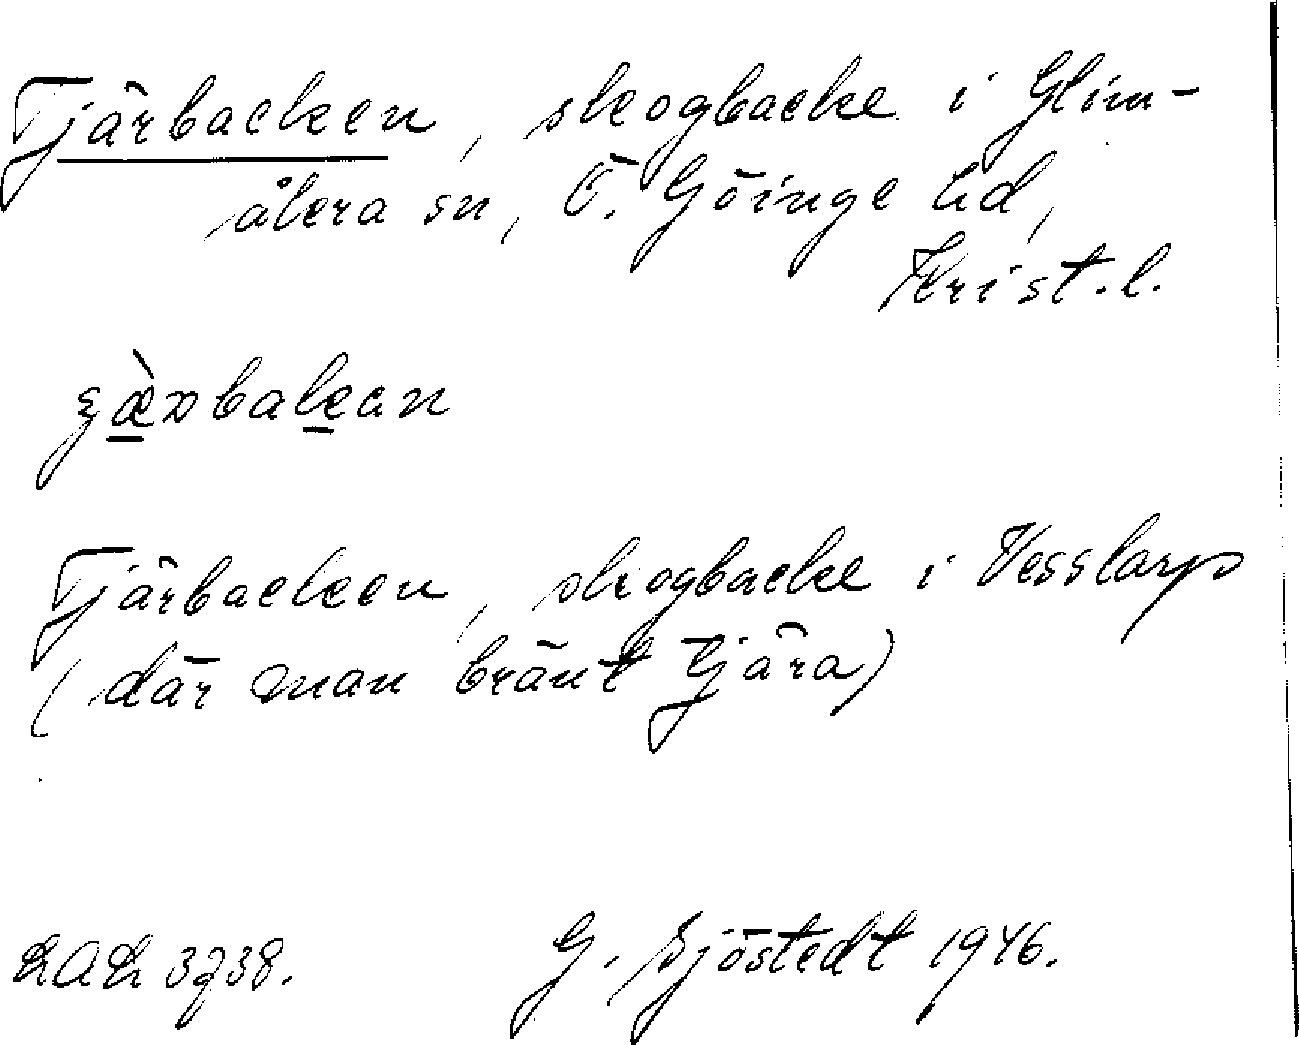 Tjärbacken, skogbacke i Glim-
åkra sn, Ö. Göinge hd,
Krist. l.
Tjärbacken, skogbacke i Vesslarp
(där man bränt tjära)
LAL 3738. G. Sjöstedt 1946.